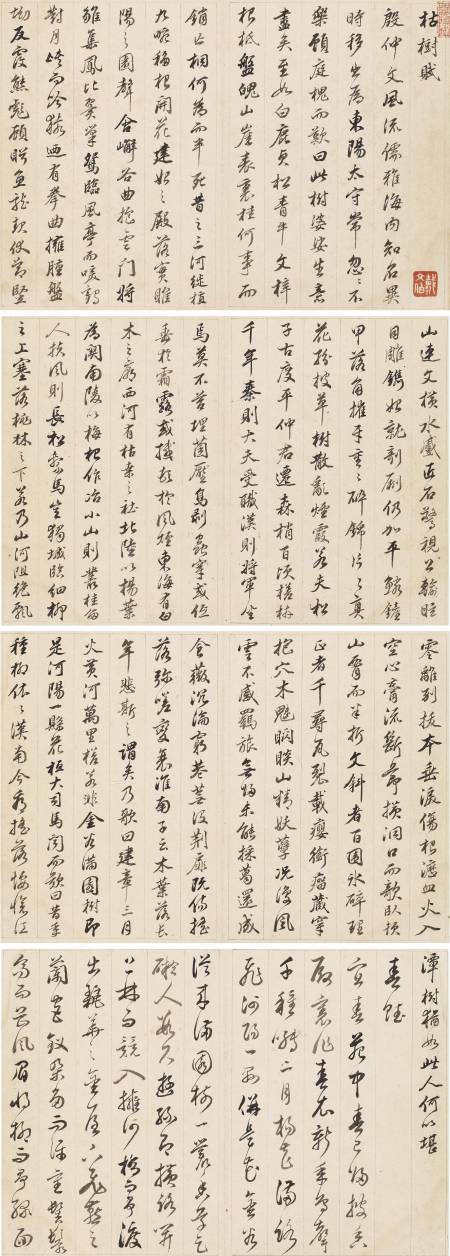 枯樹賦
殷仲文風流儒雅海內知名異
時移出為東陽太守常忽忽不
樂顧庭槐而歎曰此樹婆娑生意
盡矣至如白鹿貞松青牛文梓
根柢盤魄山崖表裏桂何事而
銷亡桐何為而半死昔之三河徙植
九畹移根開花建始之殿落實睢
陽之園聲含嶰谷曲抱雲門將
雛集鳳比翼巢鴛臨風亭而唳鶴
對月峽而吟猿迺有拳曲擁腫盤
坳反覆熊彪顧盼魚龍起伏節豎
山連文橫水蹙匠石驚視公輸眩
目雕鐫始就剞劂仍加平鱗鏟
甲落角摧牙重重碎錦片片真
花紛披草樹散亂煙霞若夫松
子古度平仲君遷森梢百頃槎枿
千年秦則大夫受職漢則將軍坐
焉莫不苔埋菌壓鳥剝蟲穿或低
垂於霜露或撼頓於風煙東海有白
木之廟西河有枯桑之社北陸以楊葉
為關南陵以梅根作冶小山則叢桂留
人扶風則長松繫馬豈獨城臨細柳
之上塞落桃林之下若乃山河阻絕飄
零離別拔本垂淚傷根瀝血火入
空心膏流斷節橫洞口而欹臥頓
山腰而半折文斜者百圍冰碎理
正者千尋瓦裂載癭銜瘤藏穿
抱穴木魅睒山精妖孽況復風
雲不感羈旅無歸未能採葛還成
食薇沉淪窮巷蕪沒荊扉既傷搖
落彌嗟變衰淮南子云木葉落長
年悲斯之謂矣乃歌曰建章三月
火黃河萬里槎若非金谷滿園樹即
是河陽一縣花桓大司馬聞而歎曰昔年
種柳依依漢南今看搖落悽愴江
潭樹猶如此人何以堪
春賦
宜春苑中春已歸披香
殿裏作春衣新年鳥聲
千種囀二月楊花滿路
飛河陽一縣併是花金谷
從來滿園樹一叢香草足
礙人數尺遊絲即橫路開
上林而競入擁河橋而爭渡
出麗華之金屋下飛燕之
蘭宮釵朵多而訝重髻鬟
高而畏風眉將柳而爭綠面